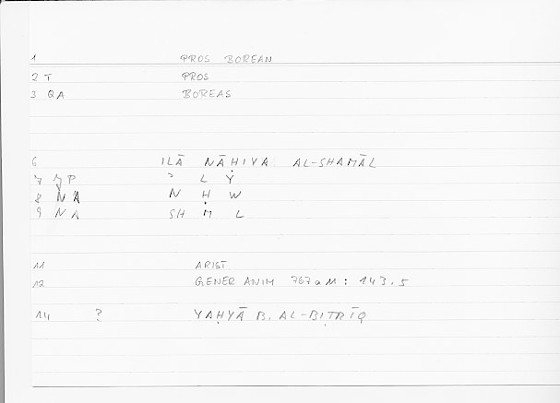 1 PROS BOREAN
2 T PROS
3 QA BOREAS
6 ILĀ NĀḤIYA AL-SHAMĀL
7 JP ʾ L Y
8 NA N Ḥ W
9 NA SH M L
11 ARIST
12 GENER ANIM 767 a 11 : 143.5
14 ? YAḤYĀ B. AL-BIṬRĪQ